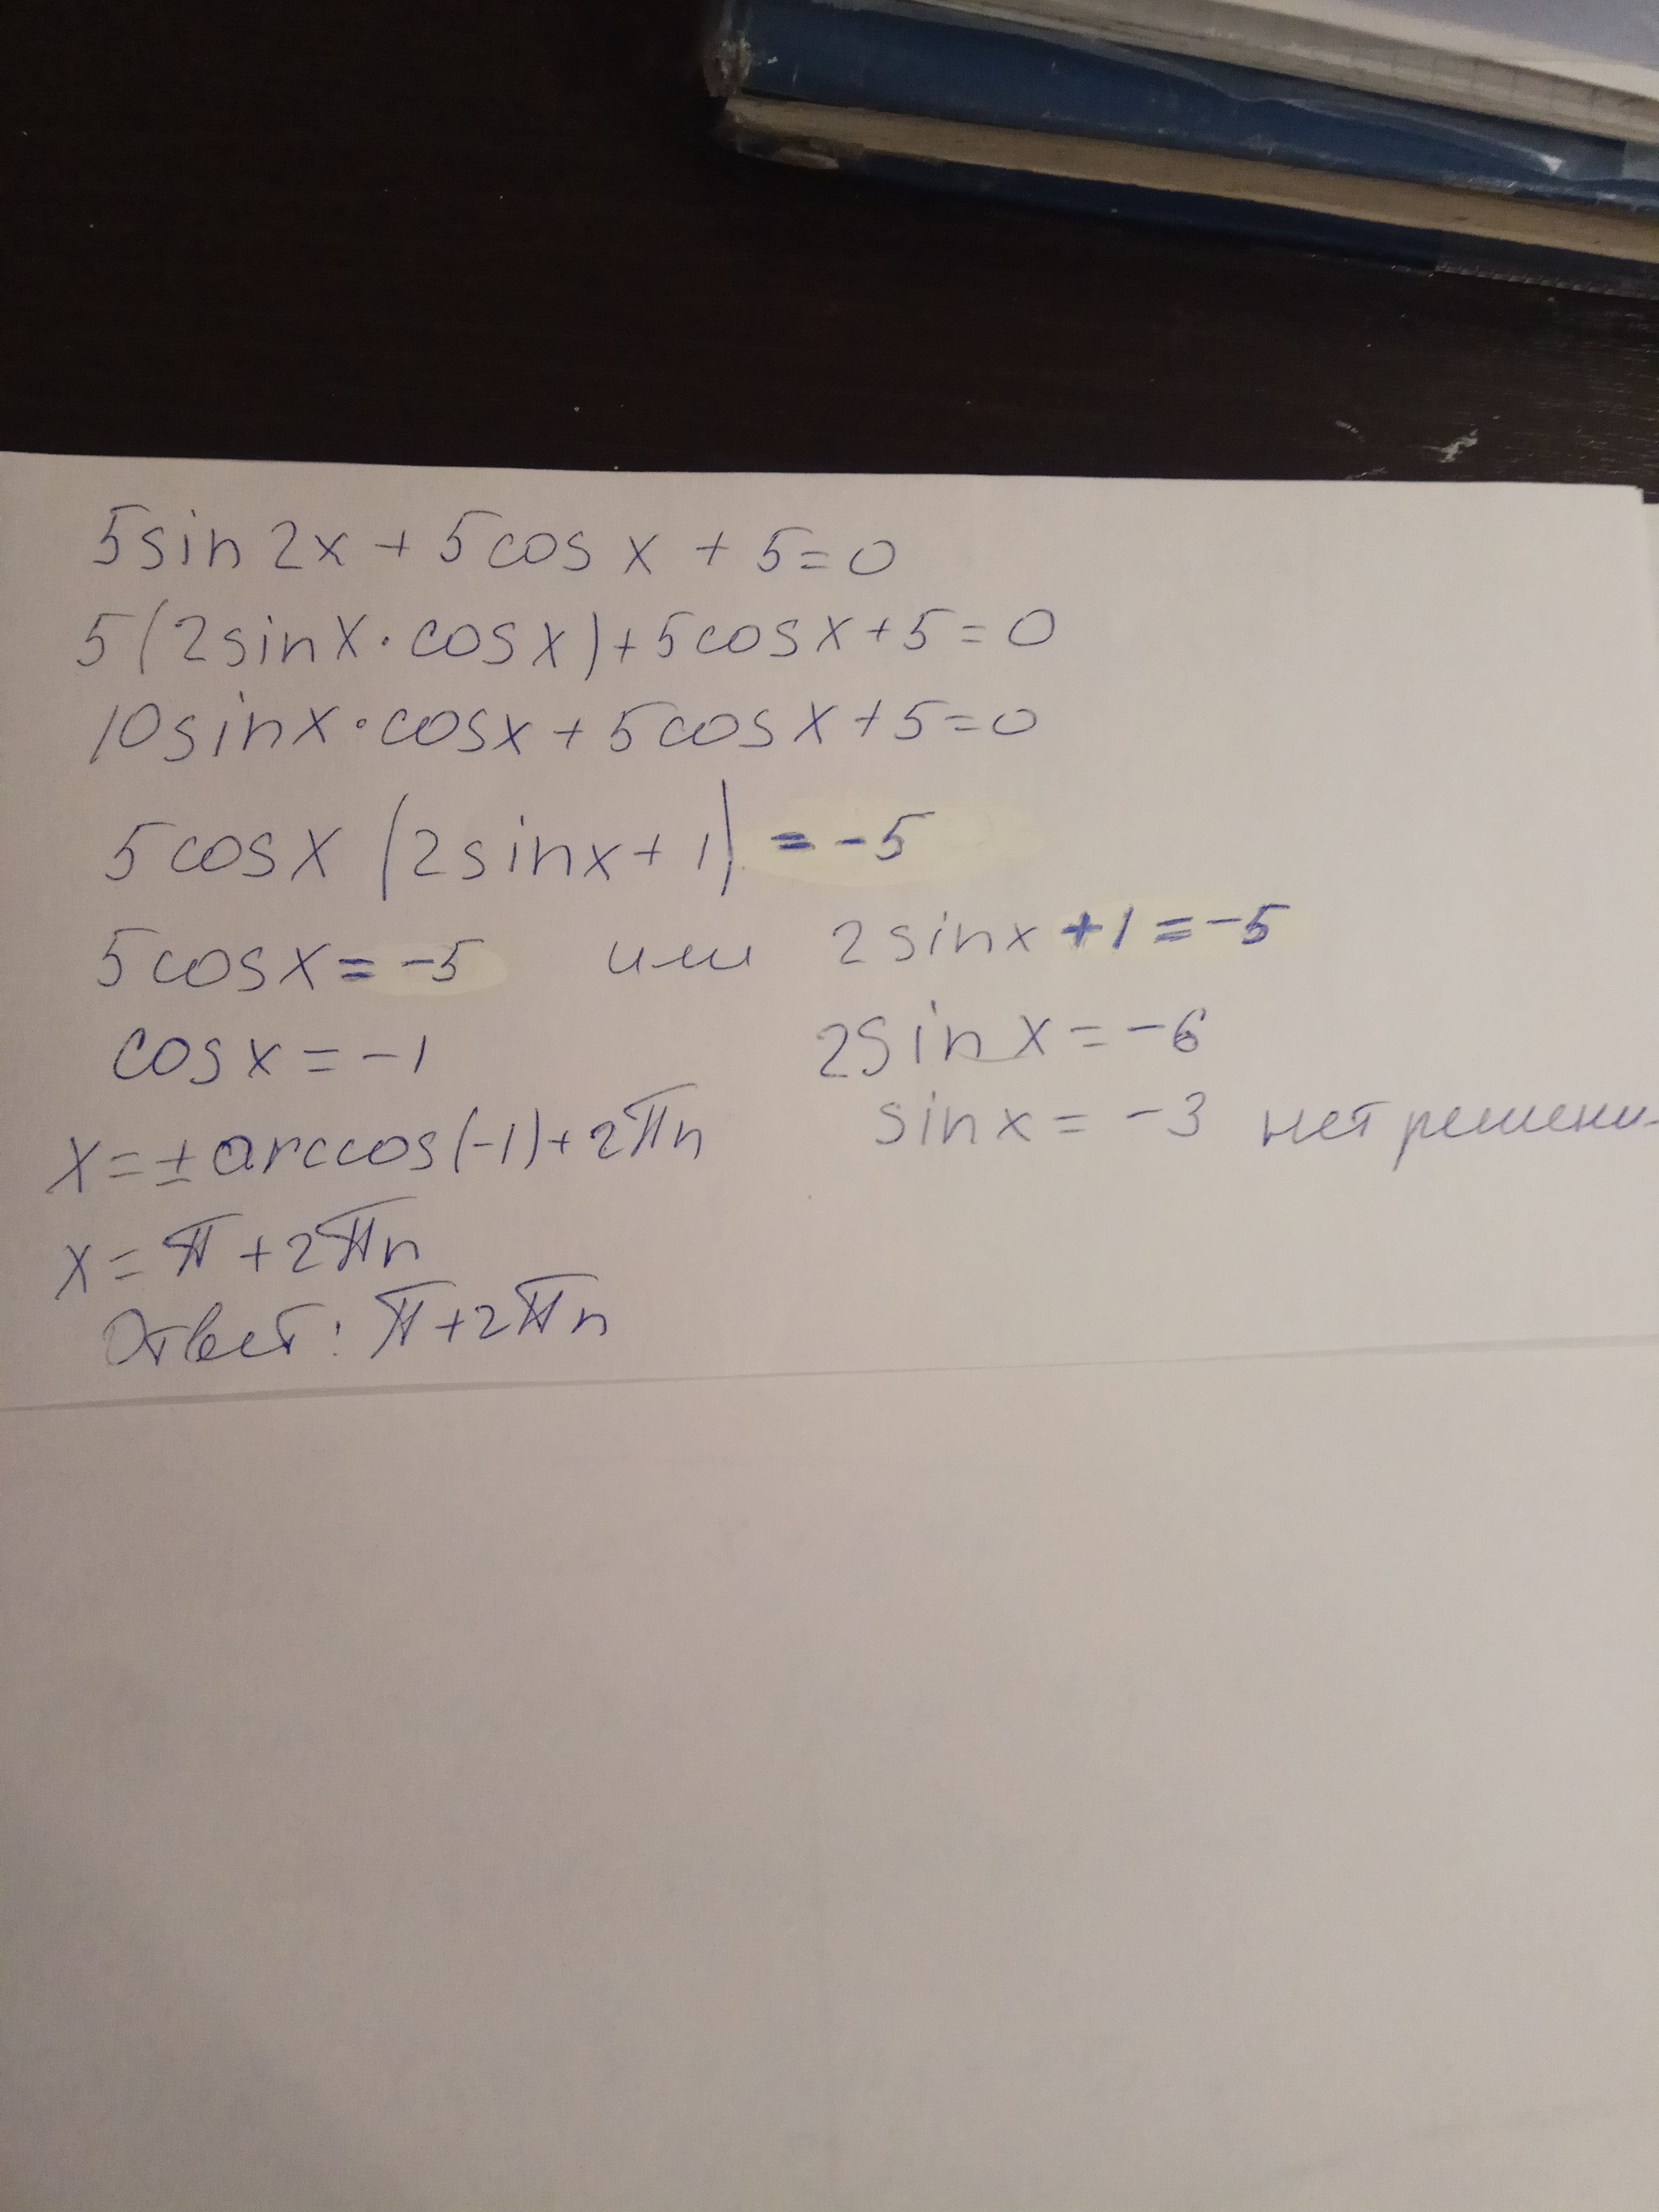 5sin2x + 5cosx + 5=0
5(2sinx·cosx)+5cosx+5=0
10sinx·cosx+5cosx+5=0
5cosx (2sinx+1) = -5
5cosx = -5 или 2sinx +1 = -5
cosx = -1 2sinx = -6
x = ± arccos(-1)+2πn sinx = -3 нет решени
x = π + 2πn
Ответ: π+2πn